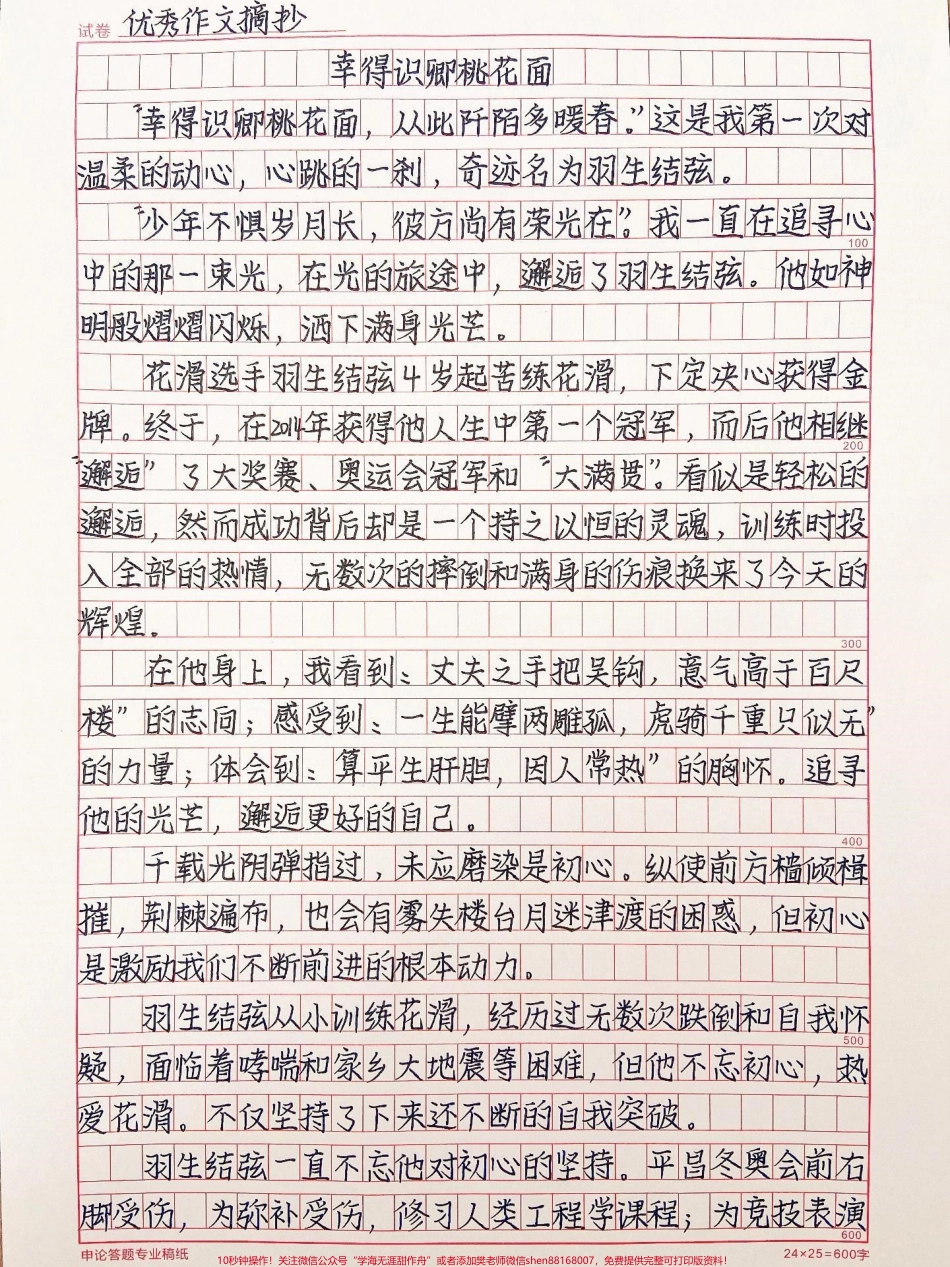 试卷 优秀作文摘抄
幸得识卿桃花面
“幸得识卿桃花面，从此阡陌多暖春。”这是我第一次对
温柔的动心，心跳的一刹，奇迹名为羽生结弦。
“少年不惧岁月长，彼方尚有荣光在”。我一直在追寻心
100
中的那一束光，在光的旅途中，邂逅了羽生结弦。他如神
明般熠熠闪烁，洒下满身光芒。
花滑选手羽生结弦4岁起苦练花滑，下定决心获得金
牌。终于，在2014年获得他人生中第一个冠军，而后他相继
200
“邂逅”了大奖赛、奥运会冠军和“大满贯”。看似是轻松的
邂逅，然而成功背后却是一个持之以恒的灵魂，训练时投
入全部的热情，无数次的摔倒和满身的伤痕换来了今天的
辉煌。
300
在他身上，我看到：丈夫之手把吴钩，意气高于百尺
楼”的志向；感受到：一生能擘两雕弧，虏骑千重只似无”
的力量；体会到：算平生肝胆，因人常热”的胸怀。追寻
他的光芒，邂逅更好的自己。
400
千载光阴弹指过，未应磨染是初心。纵使前方樯倾楫
摧，荆棘遍布，也会有雾失楼台月迷津渡的困惑，但初心
是激励我们不断前进的根本动力。
羽生结弦从小训练花滑，经历过无数次跌倒和自我怀
500
疑，面临着哮喘和家乡大地震等困难，但他不忘初心，热
爱花滑。不仅坚持了下来还不断的自我突破。
羽生结弦一直不忘他对初心的坚持。平昌冬奥会前右
脚受伤，为弥补受伤，修习人类工程学课程；为竞技表演
600
申论答题专业稿纸 24×25=600字
10秒钟操作！关注微信公众号“学海无涯甜作舟”或者添加樊老师微信shen88168007，免费提供完整可打印版资料！